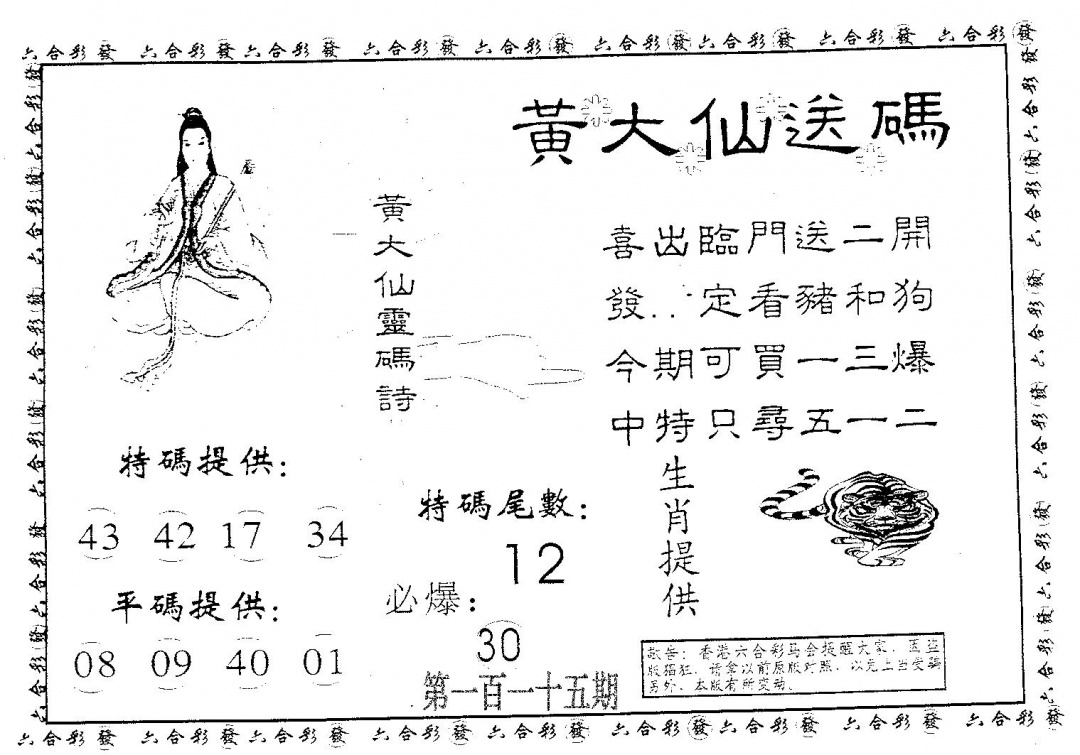 六合彩發 六合彩發六合彩發 六合彩發 六合彩發 六合彩發六合彩發 六合彩發 六合彩發
黃大仙送碼
黃大仙靈碼詩
喜出臨門送二開
發..定看豬和狗
今期可買一三爆
中特只尋五一二
特碼提供:
43 42 17 34
平碼提供:
08 09 40 01
特碼尾數:
12
必爆:
30
第一百一十五期
生肖提供
敬告:香港六合彩马会提醒大家,因盗
版猖狂,请拿以前原版对照,以免上当受骗
另外,本版有所变动。
六合彩發 六合彩發六合彩發 六合彩發 六合彩發 六合彩發六合彩發 六合彩發 六合彩發